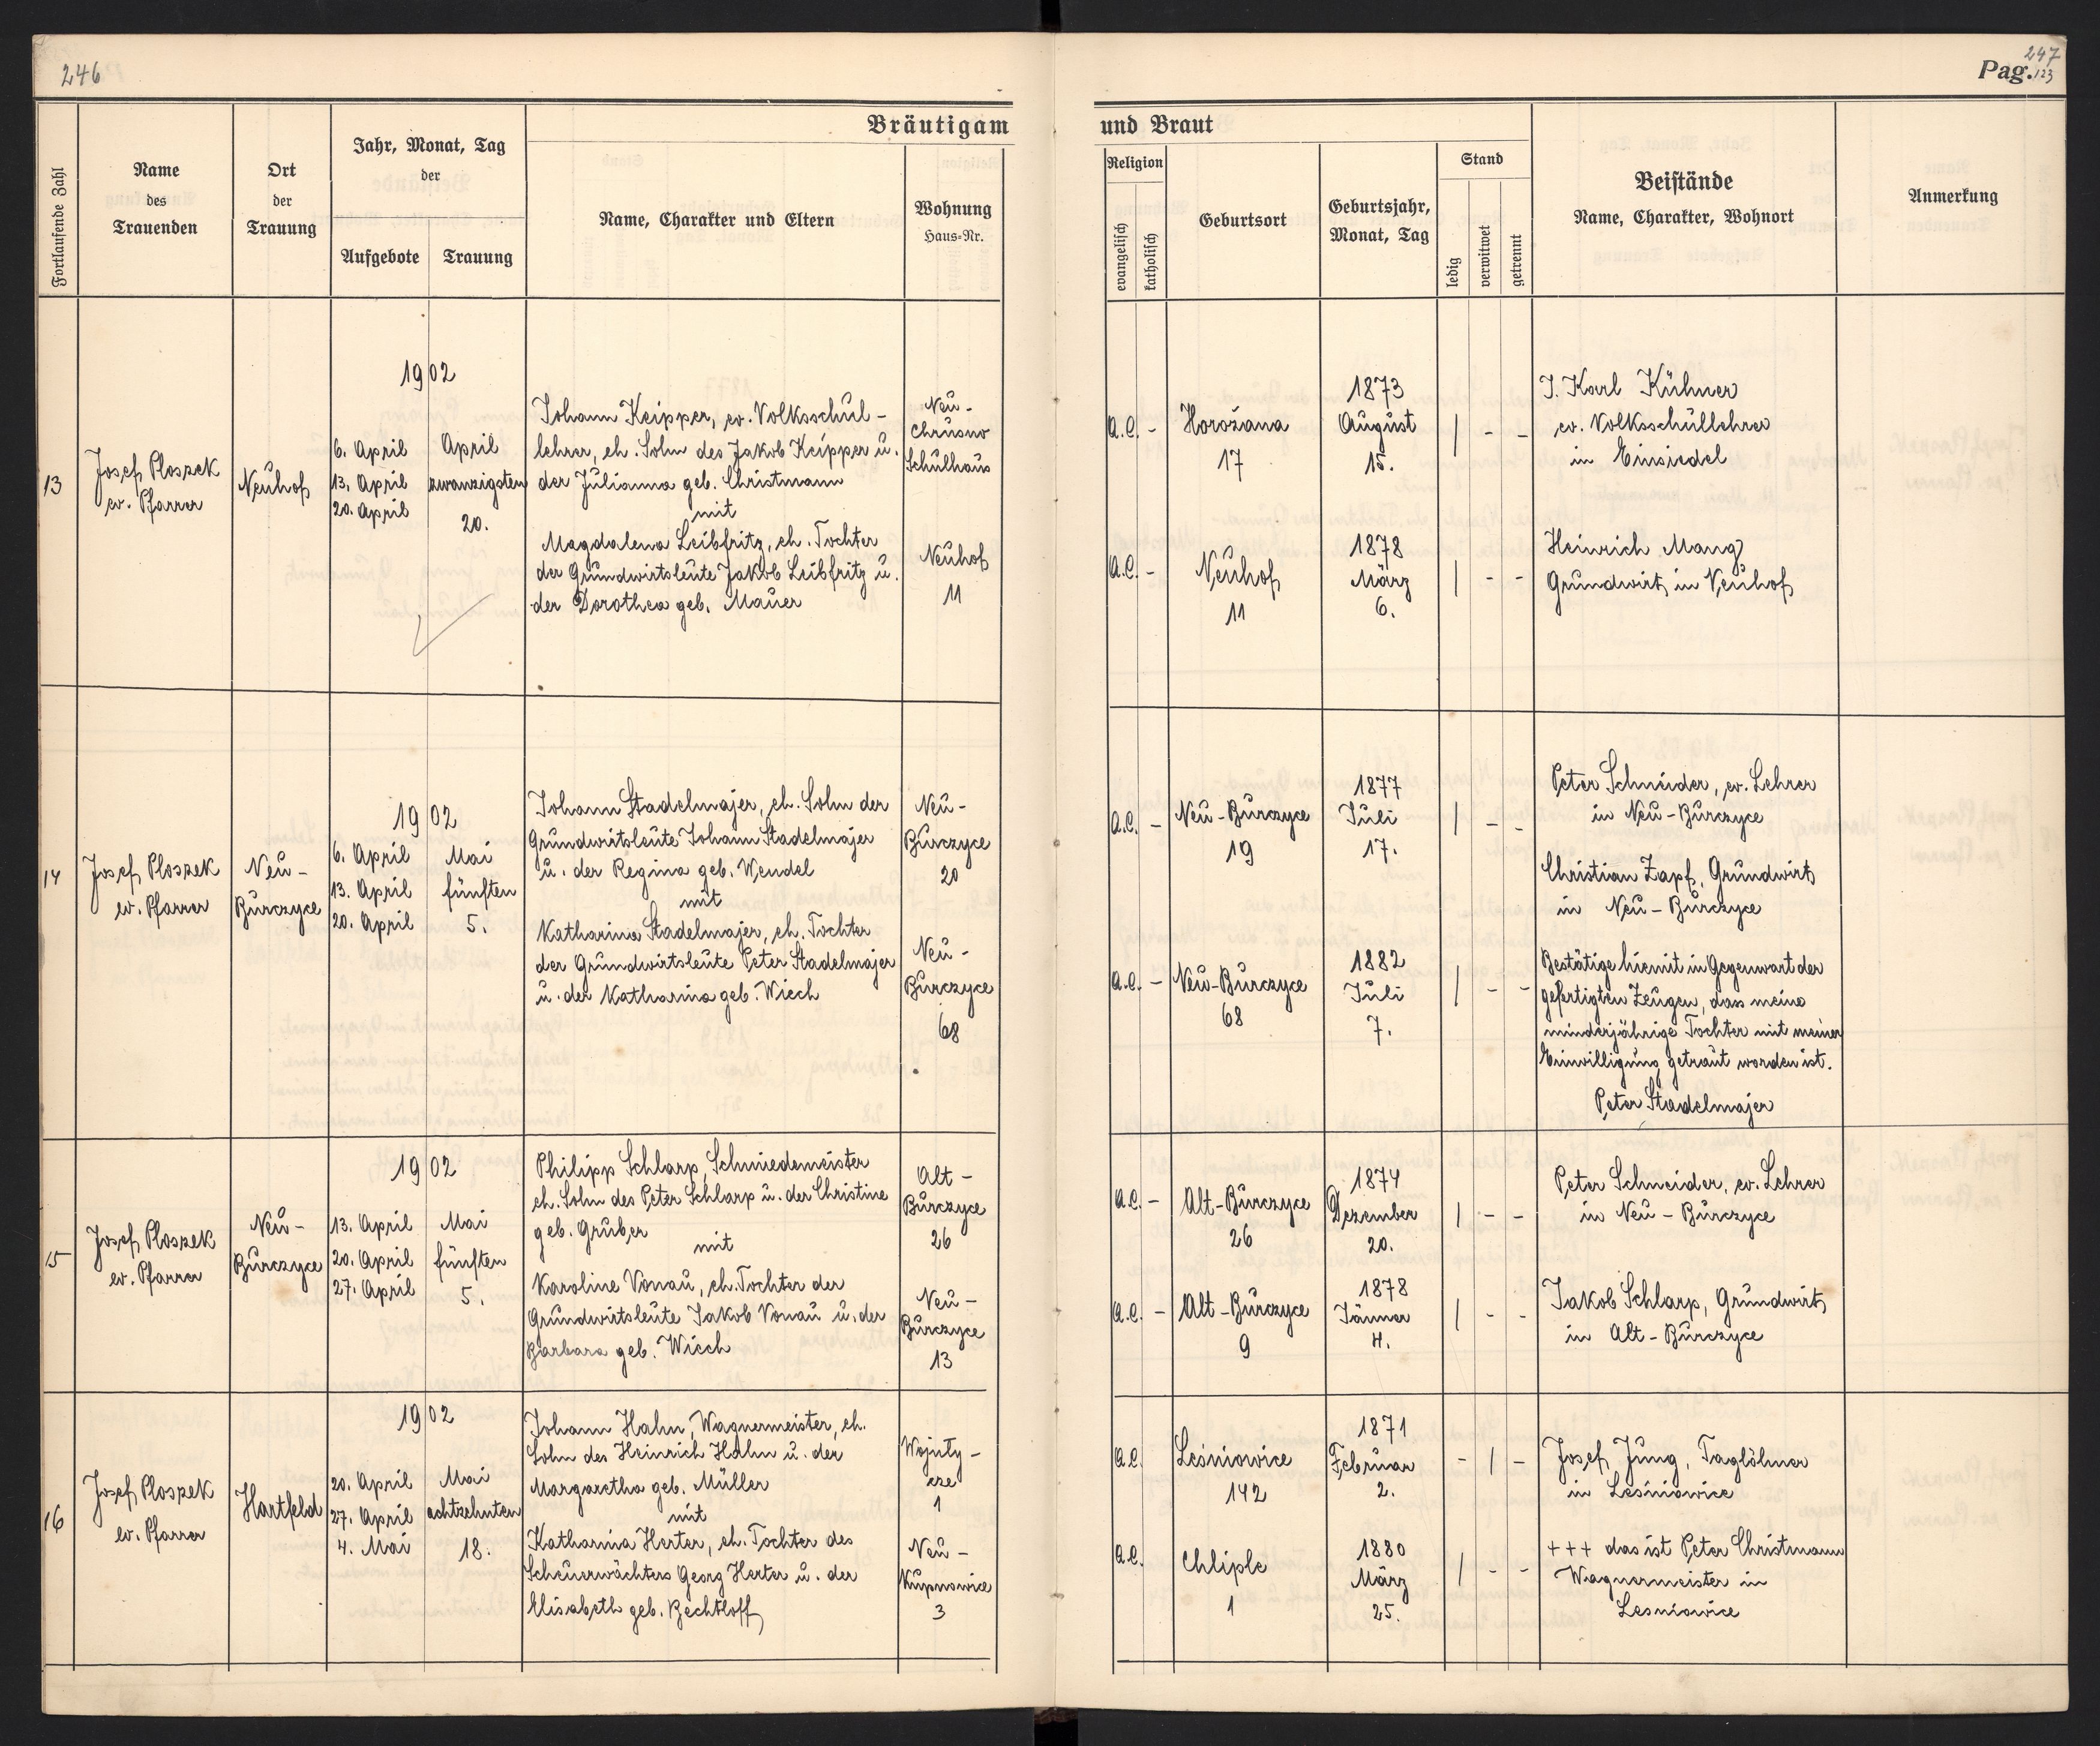 246
247
Pag. 123
Bräutigam und Braut
Fortlaufende Zahl
Name
des
Trauenden
Ort
der
Trauung
Jahr, Monat, Tag
der
Aufgebote
Trauung
Name, Charakter und Eltern
Wohnung
Haus-Nr.
Religion
evangelisch
katholisch
Geburtsort
Geburtsjahr,
Monat, Tag
Stand
ledig
verwitwet
getrennt
Beistände
Name, Charakter, Wohnort
Anmerkung
13
Josef Ploszek
ev. Pfarrer
Neuhof
1902
6. April
13. April
20. April
April
zwanzigsten
20.
Johann Keipper, ev. Volksschul-
lehrer, eh. Sohn des Jakob Keipper u.
der Julianna geb. Christmann
mit
Magdalena Leibfritz, eh. Tochter
der Grundwirtsleute Jakob Leibfritz u.
der Dorothea geb. Mauer
Neu-
Chrusno
Schulhaus
Neuhof
11
A.C. -
Horożana
17
1873
August
15.
/ - -
J. Karl Kühner
ev. Volksschullehrer
in Einsiedel
A.C. -
Neuhof
11
1878
März
6.
/ - -
Heinrich Mang
Grundwirt in Neuhof
14
Josef Ploszek
ev. Pfarrer
Neu-
Burczyce
1902
6. April
13. April
20. April
Mai
fünften
5.
Johann Stadelmajer, eh. Sohn der
Grundwirtsleute Johann Stadelmajer
u. der Regina geb. Wendel
mit
Katharina Stadelmajer, eh. Tochter
der Grundwirtsleute Peter Stadelmajer
u. der Katharina geb. Wiech
Neu-
Burczyce
20
Neu-
Burczyce
68
A.C. -
Neu-Burczyce
19
1877
Juli
17.
/ - -
Peter Schneider, ev. Lehrer
in Neu-Burczyce
Christian Zapf, Grundwirt
in Neu-Burczyce
A.C. -
Neu-Burczyce
68
1882
Juli
7.
/ - -
Bestätige hiemit in Gegenwart der
gefertigten Zeugen, dass meine
minderjährige Tochter mit meiner
Einwilligung getraut worden ist.
Peter Stadelmajer
15
Josef Ploszek
ev. Pfarrer
Neu-
Burczyce
1902
13. April
20. April
27. April
Mai
fünften
5.
Philipp Schlarp, Schmiedemeister
eh. Sohn des Peter Schlarp u. der Christine
geb. Gruber
mit
Karoline Vonau, eh. Tochter der
Grundwirtsleute Jakob Vonau u. der
Barbara geb. Wiech
Alt-
Burczyce
26
Neu-
Burczyce
13
A.C. -
Alt-Burczyce
26
1874
Dezember
20.
/ - -
Peter Schneider, ev. Lehrer
in Neu-Burczyce
A.C. -
Alt-Burczyce
9
1878
Jänner
4.
/ - -
Jakob Schlarp, Grundwirt
in Alt-Burczyce
16
Josef Ploszek
ev. Pfarrer
Hartfeld
1902
20. April
27. April
4. Mai
Mai
achtzehnten
18.
Johann Hahn, Wagnermeister, eh.
Sohn des Heinrich Hahn u. der
Margaretha geb. Müller
mit
Katharina Herter, eh. Tochter des
Scheuerwächters Georg Herter u. der
Elisabeth geb. Bechtloff
Wojuty-
cze
1
Neu-
Kupnowice
3
A.C.
Leśniowice
142
1871
Februar
2.
- / -
Josef Jung, Taglöhner
in Leśniowice
A.C.
Chliple
1
1880
März
25.
/ - -
+++ das ist Peter Christmann
Wagnermeister in
Lesniowice